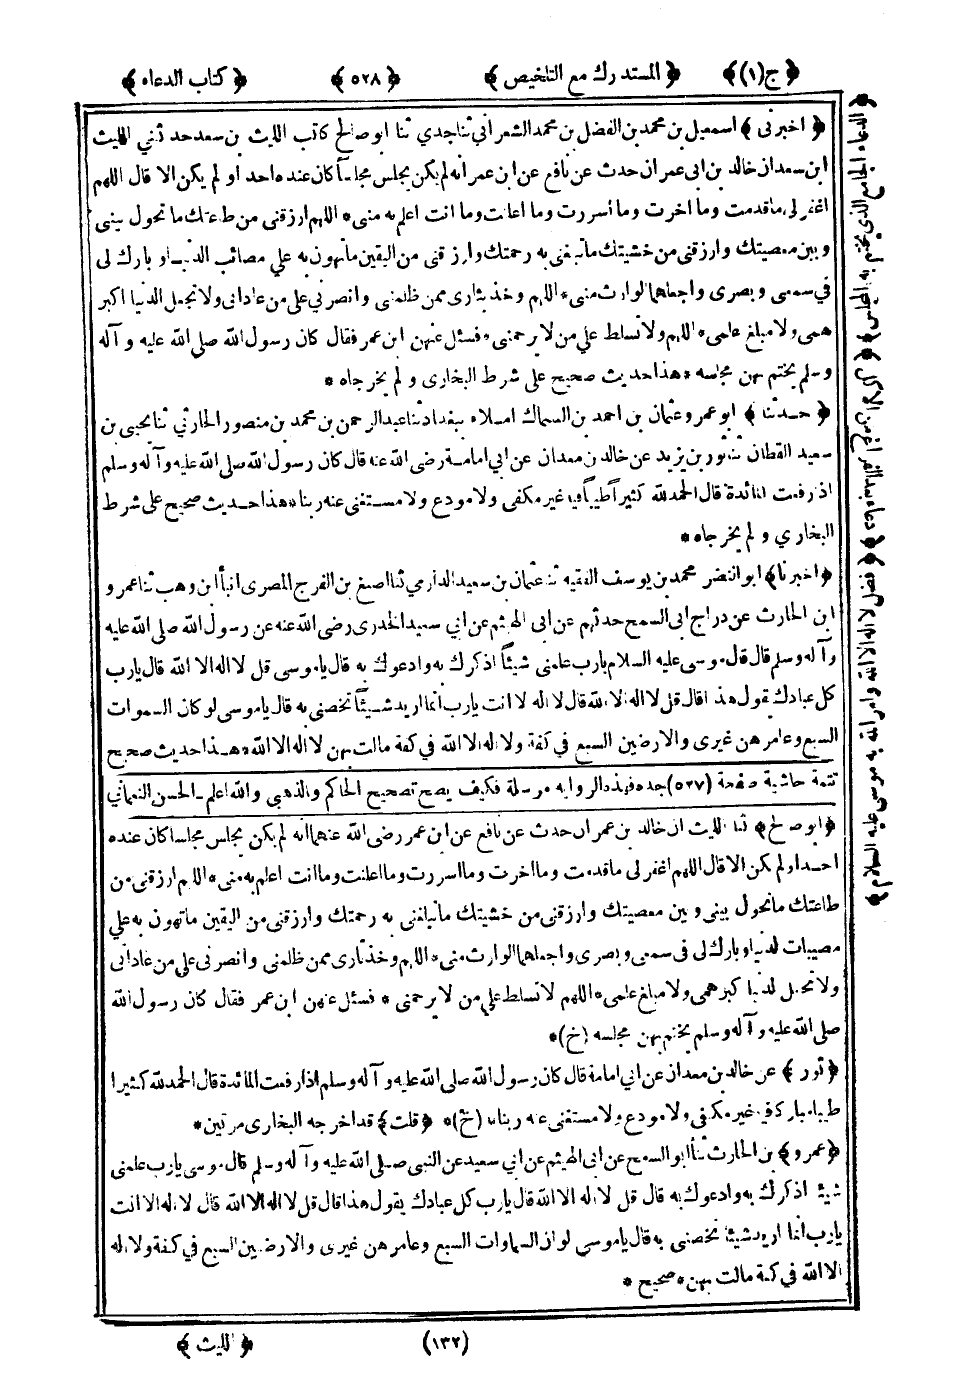 ﴿ ج(١) ﴾ ﴿ المستدرك مع التلخيص ﴾ ﴿ ٥٢٨ ﴾ ﴿ كتاب الدعاء ﴾
﴿ اخبرنى ﴾ اسمعيل بن محمد بن الفضل بن محمد الشعرانى ثنا جدي ثنا ابو صالح كاتب الليث بن سعد حدثني الليث
ابن سعد ان خالد بن ابى عمران حدث عن نافع عن ابن عمر انه لم يكن يجلس مجلسا كان عنده احد او لم يكن الا قال اللهم
اغفر لى ما قدمت وما اخرت وما أسررت وما اعلنت وما انت اعلم به منى * اللهم ارزقنى من طاعتك ما تحول بينى
وبين معصيتك وارزقنى من خشيتك ما تبلغنى به رحمتك وارزقنى من اليقين ما تهون به علي مصائب الدنيا و بارك لى
في سمعى وبصرى واجعلهما الوارث منى * اللهم وخذ بثارى ممن ظلمنى وانصرني على من عادانى ولا تجعل الدنيا اكبر
همى ولا مبلغ علمى * اللهم ولا تسلط علي من لا يرحمنى * فسئل عنهن ابن عمر فقال كان رسول الله صلى الله عليه وآله
وسلم يختم بهن مجلسه * هذا حديث صحيح على شرط البخارى ولم يخرجاه *
﴿ حدثنا ﴾ ابو عمرو عثمان بن احمد بن السماك املاء ببغداد ثنا عبدالرحمن بن محمد بن منصور الحارثي ثنا يحيى بن
سعيد القطان ثنا ثور بن يزيد عن خالد بن معدان عن ابي امامة رضى الله عنه قال كان رسول الله صلى الله عليه وآله وسلم
اذا رفعت المائدة قال الحمد لله كثيرا طيبا فيه غير مكفى ولا مودع ولا مستغنى عنه ربنا * هذا حديث صحيح على شرط
البخاري ولم يخرجاه *
﴿ اخبرنا ﴾ ابو النضر محمد بن يوسف الفقيه ثنا عثمان بن سعيد الدارمي ثنا اصبغ بن الفرج المصرى انبأ ابن وهب ثنا عمرو
ابن الحارث عن دراج ابى السمح حدثهم عن ابى الهيثم عن ابي سعيد الخدرى رضى الله عنه عن رسول الله صلى الله عليه
وآله وسلم قال قال موسى عليه السلام يارب علمنى شيئاً اذكرك به وادعوك به قال يا موسى قل لا اله الا الله قال يارب
كل عبادك يقول هذا قال قل لا اله الا الله قال لا اله الا انت يارب انما اريد شيئاً تخصنى به قال يا موسى لو كان السموات
السبع وعامرهن غيرى والارضين السبع في كفة ولا اله الا الله في كفة مالت بهن لا اله الا الله * هذا حديث صحيح
تتمة حاشية صفحة (٥٢٧) جده فهذه الرواية مرسلة فكيف يصح تصحيح الحاكم والذهبى والله اعلم ـ الحسن النعمانى
﴿ ابو صالح ﴾ ثنا الليث ان خالد بن عمران حدث عن نافع عن ابن عمر رضى الله عنهما انه لم يكن يجلس مجلسا كان عنده
احد او لم يكن الا قال اللهم اغفر لى ما قدمت وما أخرت وما اسررت وما اعلنت وما انت اعلم به منى * اللهم ارزقنى من
طاعتك ما تحول بينى وبين معصيتك وارزقنى من خشيتك ما تبلغنى به رحمتك وارزقنى من اليقين ما تهون به على
مصيبات الدنيا و بارك لى فى سمعى وبصرى واجعلهما الوارث منى * اللهم وخذ ثارى ممن ظلمنى وانصرنى على من عادانى
ولا تجعل الدنيا اكبر همى ولا مبلغ علمى * اللهم لا تسلط على من لا يرحمنى * فسئل عنهن ابن عمر فقال كان رسول الله
صلى الله عليه وآله وسلم يختم بهن مجلسه (خ) *
﴿ ثور ﴾ عن خالد بن معدان عن ابى امامة قال كان رسول الله صلى الله عليه وآله وسلم اذا رفعت المائدة قال الحمد لله كثيرا
طيبا مباركا فيه غير مكفي ولا مودع ولا مستغنى عنه ربنا (خ) * ﴿ قلت ﴾ قد اخرجه البخارى مرتين *
﴿ عمرو ﴾ بن الحارث ثنا ابو السمح عن ابى الهيثم عن ابي سعيد عن النبى صلى الله عليه وآله وسلم قال موسى يارب علمنى
شيئا اذكرك به وادعوك به قال قل لا اله الا الله قال يارب كل عبادك يقول هذا قال قل لا اله الا الله قال لا اله الا انت
يارب انما اريد شيئا تخصنى به قال يا موسى لو ان السماوات السبع وعامرهن غيرى والارضين السبع في كفة ولا اله
الا الله في كفة مالت بهن * صحيح *
(١٣٢) ﴿ الليث ﴾